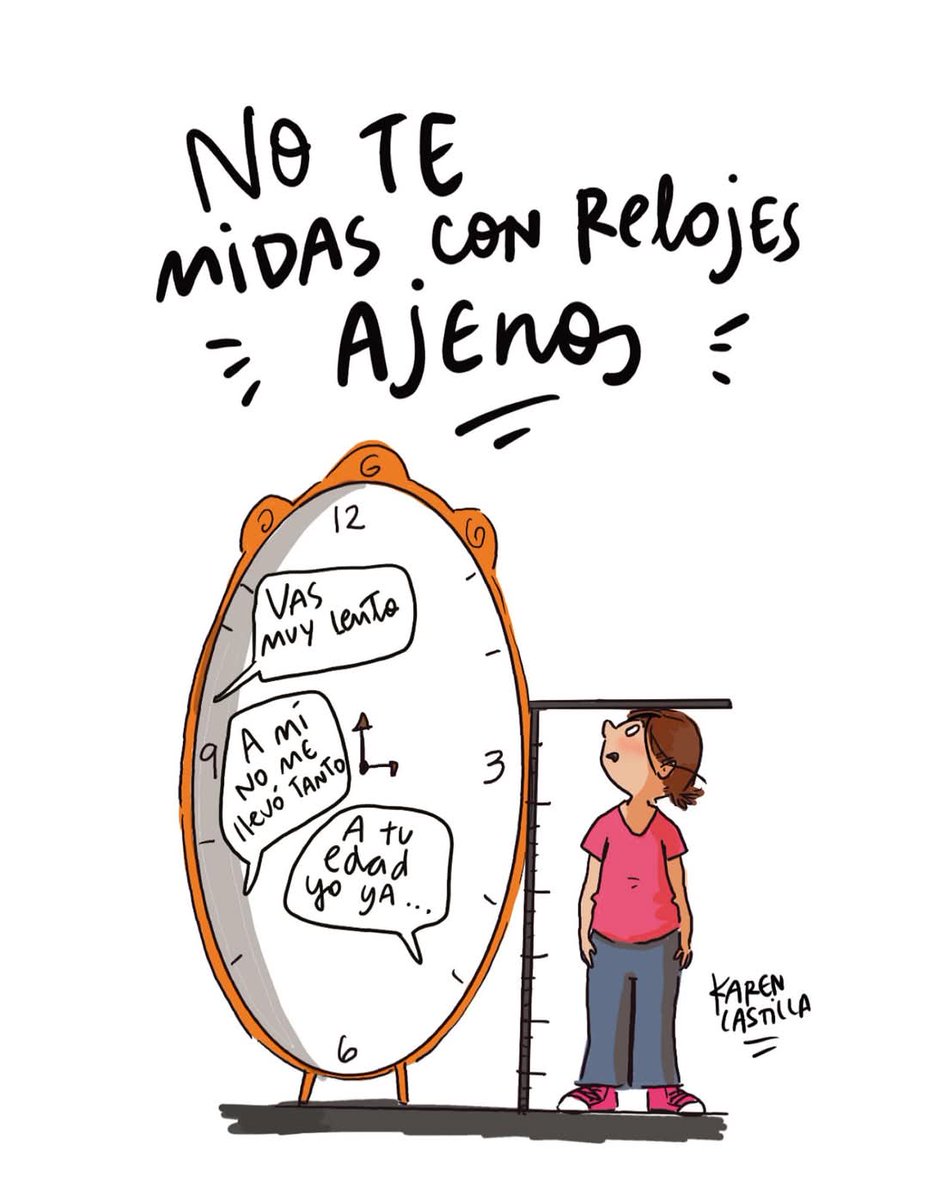 NO TE
MIDAS CON RELOJES
AJENOS
12
VAS
MUY LENTO
A MÍ
NO ME
llEVÓ TANTO
9
3
A tu
edad
yo YA...
6
KAREN
CASTILLA